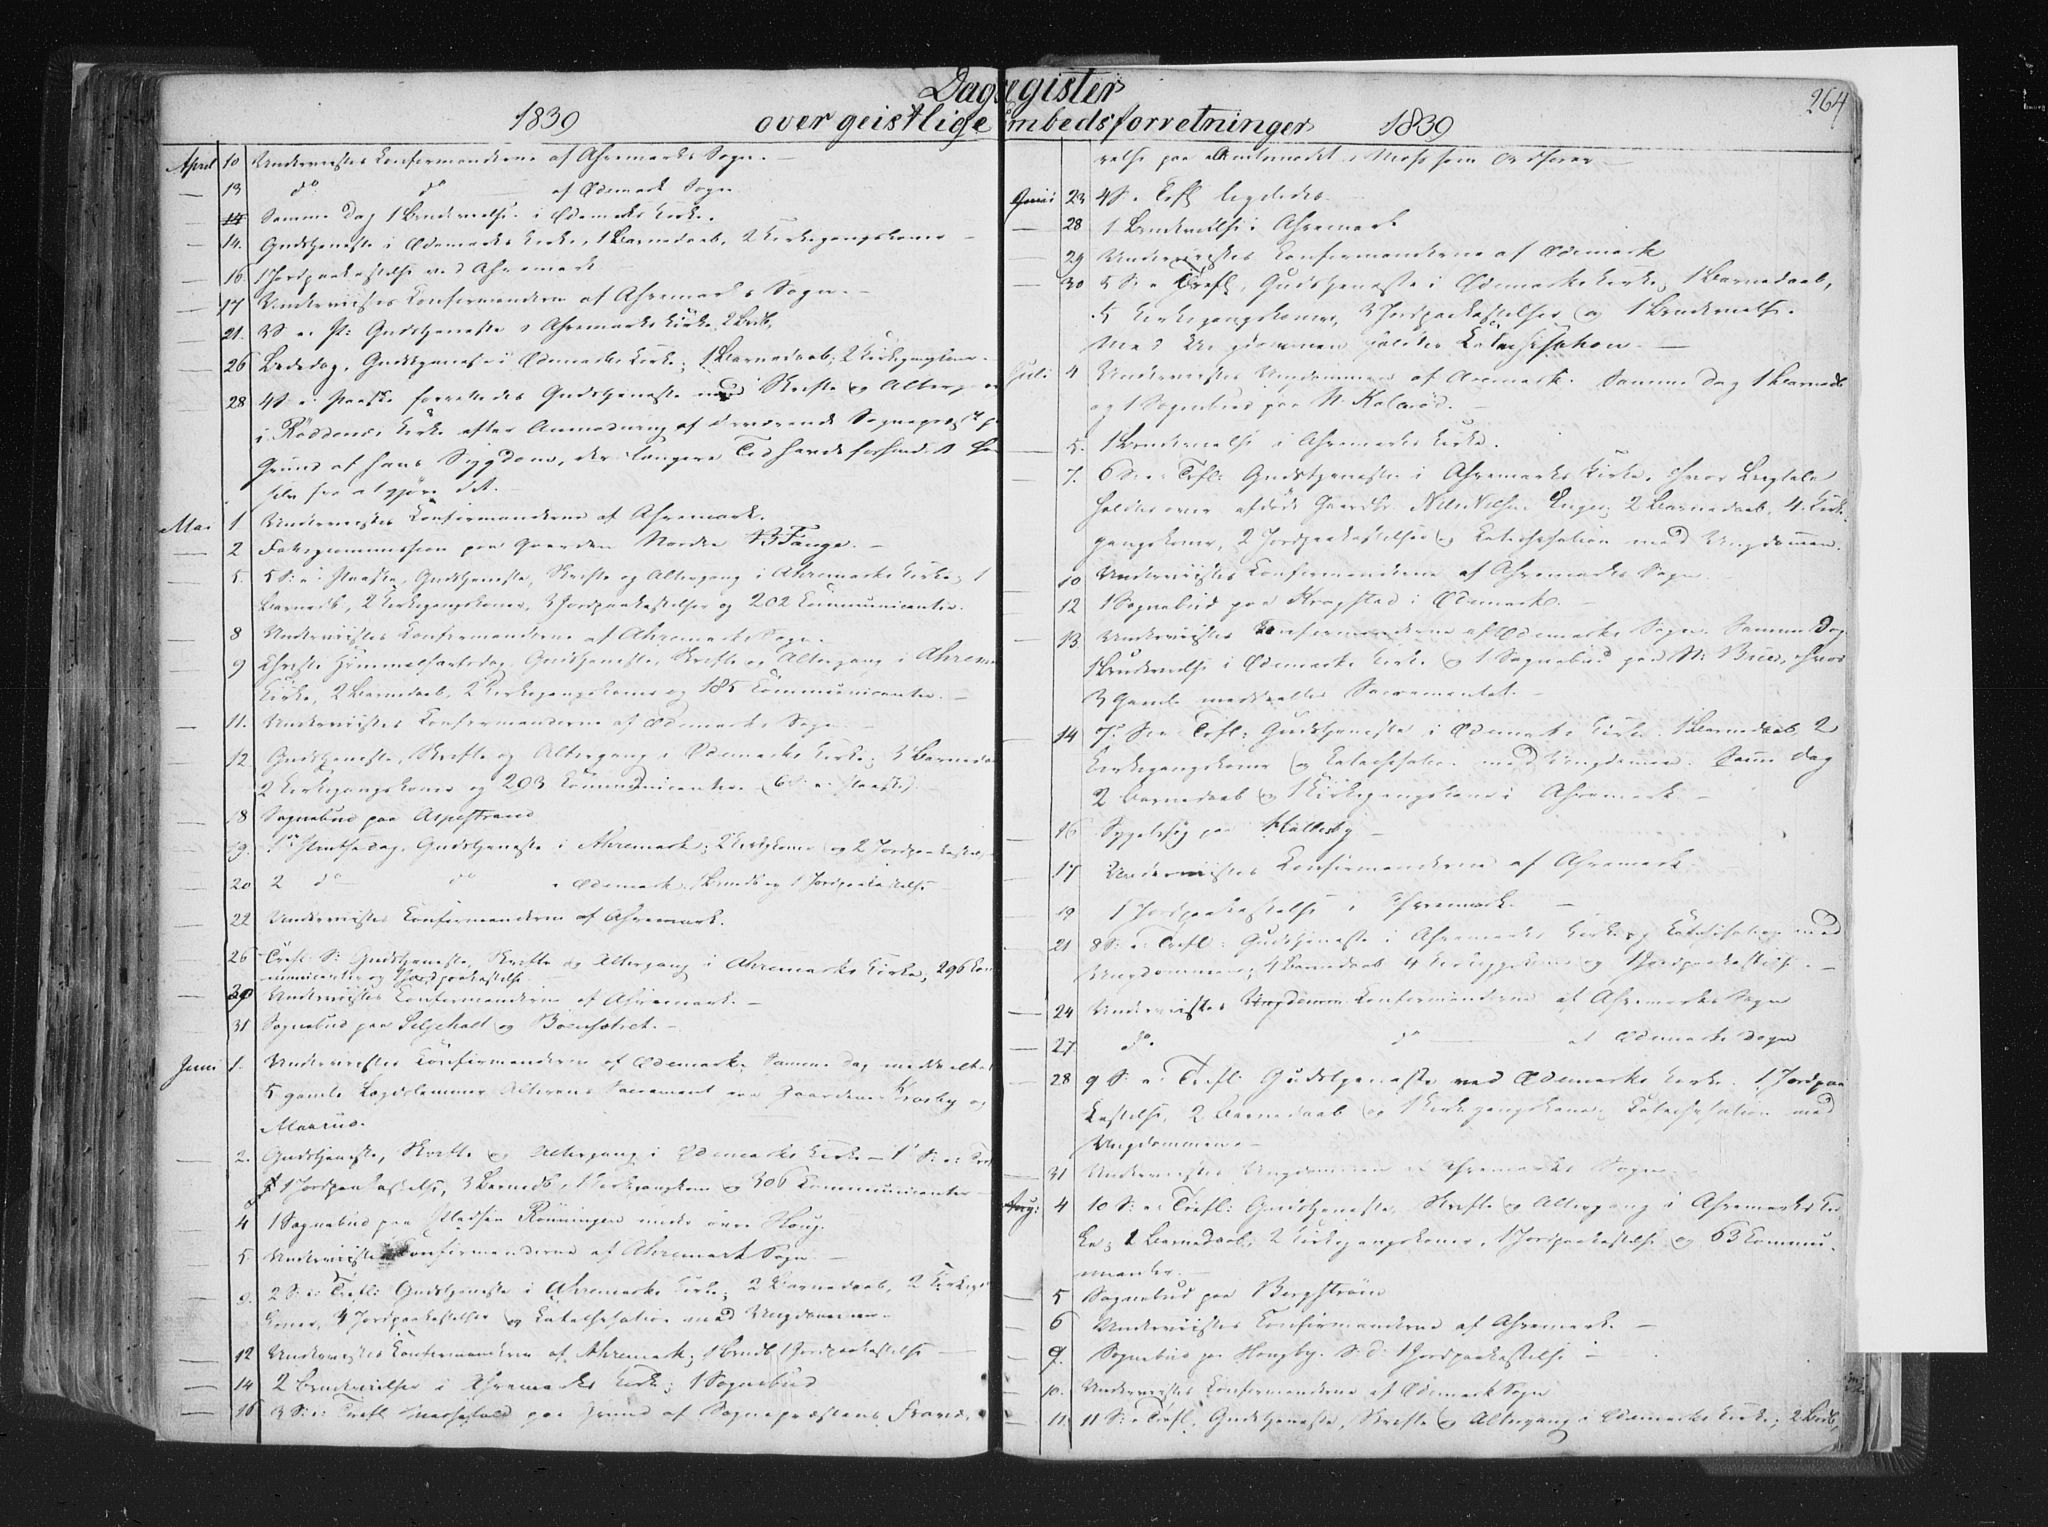 Dagregister
over geistlige Embedsforretninger
1839
April 10 Underviistes Confirmanderne af Ahremarks Sogn. —
13 do do af Ødemark Sogn
14 Samme Dag 1 Brudevielse i Ødemarks Kirke.
14. Gudstjeneste i Ødemarks Kirke, 1 Barnedaab, 2 Kirkegangskoner —
16. 1 Jordpaakastelse ved Ahremark
17 Underviistes Confirmanderne af Ahremarks Sogn. —
21. 3 S. e. P: Gudstjeneste i Ahremarks Kirke, 2 Brdb,
26 Bededag, Gudstjeneste i Ødemarks Kirke; 1 Barnedaab; 2 Kirkegangskoner.
28 4 S. e. Paaske forrettedes Gudstjeneste med Skrifte og Altergang
i Röddenes Kirke efter Anmodning af værende Sognepræst paa
Grund af hans Sygdom, der længere Tid havde forhindret ham
selv fra at gjöre det. —
Mai 1 Underviistes Confirmanderne af Ahremark.
2 Fattigcommission paa Gaarden Nordre Fange. —
5. 5 S: e: Paaske, Gudstjeneste, Skrifte og Altergang i Ahremarks Kirke; 1
Barnedb, 2 Kirkegangskoner, 3 Jordpaakastelser og 202 Communicanter.
8 Underviistes Confirmanderne af Ahremarks Sogn.
9 Christi Himmelfartsdag, Gudstjeneste, Skrifte og Altergang i Ahremarks
Kirke, 2 Barnedaab, 2 Kirkegangskoner og 185 Communicanter. —
11. Underviistes Confirmanderne af Ødemarks Sogn. —
12 Gudstjeneste, Skrifte og Altergang i Ødemarks Kirke; 3 Barnedaab
2 Kirkegangskoner og 203 Communicanter (6 S: e: Paaske) —
18 Sognebud paa Aspestrand
19. 1ste Pintsedag, Gudstjeneste i Ahremark; 2 Kirkgkoner og 2 Jordpaakastelser
20 2 do do i Ødemark, 1 Brudb og 1 Jordpaakastelse —
22 Underviistes Confirmanderne af Ahremark.
26 Trefl: S: Gudstjeneste, Skrifte og Altergang i Ahremarks Kirke, 296 Com
municanter og 1 Jordpaakastelse
29 Underviistes Confirmanderne af Ahremark. —
31 Sognebud paa Seljeholt og Boensætret. —
Juni 1. Underviistes Confirmanderne af Ødemark. Samme Dag meddeeltes
5 gamle Lægdslemmer Alterens Sacrament paa Gaardene Krosby og
Maarud.
2. Gudstjeneste, Skrifte og Altergang i Ødemarks Kirke — 1 S: e: Tref
1 Jordpaakastelse, 3 Barnedb, 1 Kirkegangkone og 306 Communicanter —
4 1 Sognebud paa Pladsen Rönningen under övre Houg.
5. Underviistes Confirmanderne af Ahremark Sogn —
9. 2 S. e: Trefl: Gudstjeneste i Ahremarks Kirke; 2 Barnedaab, 2 Kirkegangs
koner, 4 Jordpaakastelser og Catechisation med Ungdommen.
12 Underviistes Confirmanderne af Ahremark; 1 Brudb, 1 Jordpaakastelse —
14 2 Brudevielser i Ahremarks Kirke; 1 Sognebud
16 3 S: e: Trefl. Messefald paa Grund af Sognepræstens Fravæ-
1839
264
relse paa Amtsmødet i Moss som Ordfører —
Juni 23 4 S. e. Trefl. ligeledes
28 1 Brudevielse i Ahremark
29 Underviistes Confirmanderne af Ødemark
30 5 S: e Trefl, Gudstjeneste i Ødemarks Kirke, 1 Barnedaab,
5 Kirkegangskoner, 3 Jordpaakastelser og 1 Brudevielse.
Med Ungdommen holdtes Catechisation. —
Juli 4 Underviistes Ungdommen af Aremark. Samme Dag 1 Barnedb
og 1 Sognebud paa N. Kolmöd. —
5. 1 Brudevielse i Ahremarks Kirke.
7. 6 S: e: Trefl: Gudstjeneste i Ahremarks Kirke, hvor Liigtale
holdtes over afdöde Gaardbr. Nils Nilsen Enger; 2 Barnedaab, 4 Kirke-
gangskoner, 2 Jordpaakastelser og Catechisation med Ungdommen.
10 Underviistes Confirmanderne af Ahremarks Sogn.
12 1 Sognebud paa Kragstad i Ødemark. —
13 Underviistes Confirmanderne af Ødemarks Sogn. Samme Dag
1 Brudevielse i Ødemarks Kirke og 1 Sognebud paa N: Bree, hvor
3 Gamle meddeeltes Sacramentet. —
14 7. S: e Trefl: Gudstjeneste i Ødemarks Kirke. 1 Barnedaab, 2
Kirkegangskoner og Catechisation med Ungdommen. Samme Dag
2 Barnedaab og 1 Kirkegangskone i Ahremark —
16 Sygebesög paa Hallesby —
17 Underviistes Confirmanderne af Ahremark
19 1 Jordpaakastelse i Ahremark. —
21 8 S: e: Trefl: Gudstjeneste i Ahremarks Kirke og Catechisation med
Ungdommen; 4 Barnedaab 4 Kirkeggskoner og 1 Jordpaakastelse. —
24 Underviistes Ungdommen Confirmanderne af Ahremarks Sogn
27 do. do af Ødemarks Sogn
28 9 S: e: Trefl: Gudstjeneste ved Ødemarks Kirke. 1 Jordpaa
kastelse, 2 Barnedaab og 1 Kirkegangskone; Catechisation med
Ungdommen. —
31 Underviistes Ungdommen af Ahremarks Sogn.
Aug: 4 10 S: e: Trefl: Gudstjeneste, Skrifte og Altergang i Ahremarks Kir-
ke; 2 Barnedaab, 2 Kirkegangskoner, 1 Jordpaakastelse og 63 Commu-
nicanter. —
5 Sognebud paa Bergström
6 Underviistes Confirmanderne af Ahremark. —
9. Sognebud paa Hougby. S. d: 1 Jordpaakastelse —
10. Underviistes Confirmanderne af Ødemark Sogn
11. 11 S: e Trefl, Gudstjeneste, Skrifte og Altergang i Ødemarks Kirke; 2 Brdb,